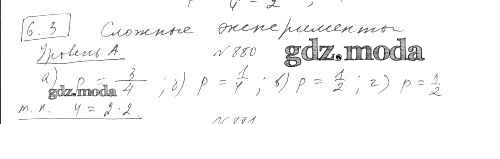 y = 2
6.3 Сложные эксперименты
Уровень А.
N 880
gdz.moda
а) p = 3/4 ; б) p = 1/4 ; в) p = 1/2 ; г) p = 1/2
gdz.moda
т.к. 4 = 2·2.
N 881